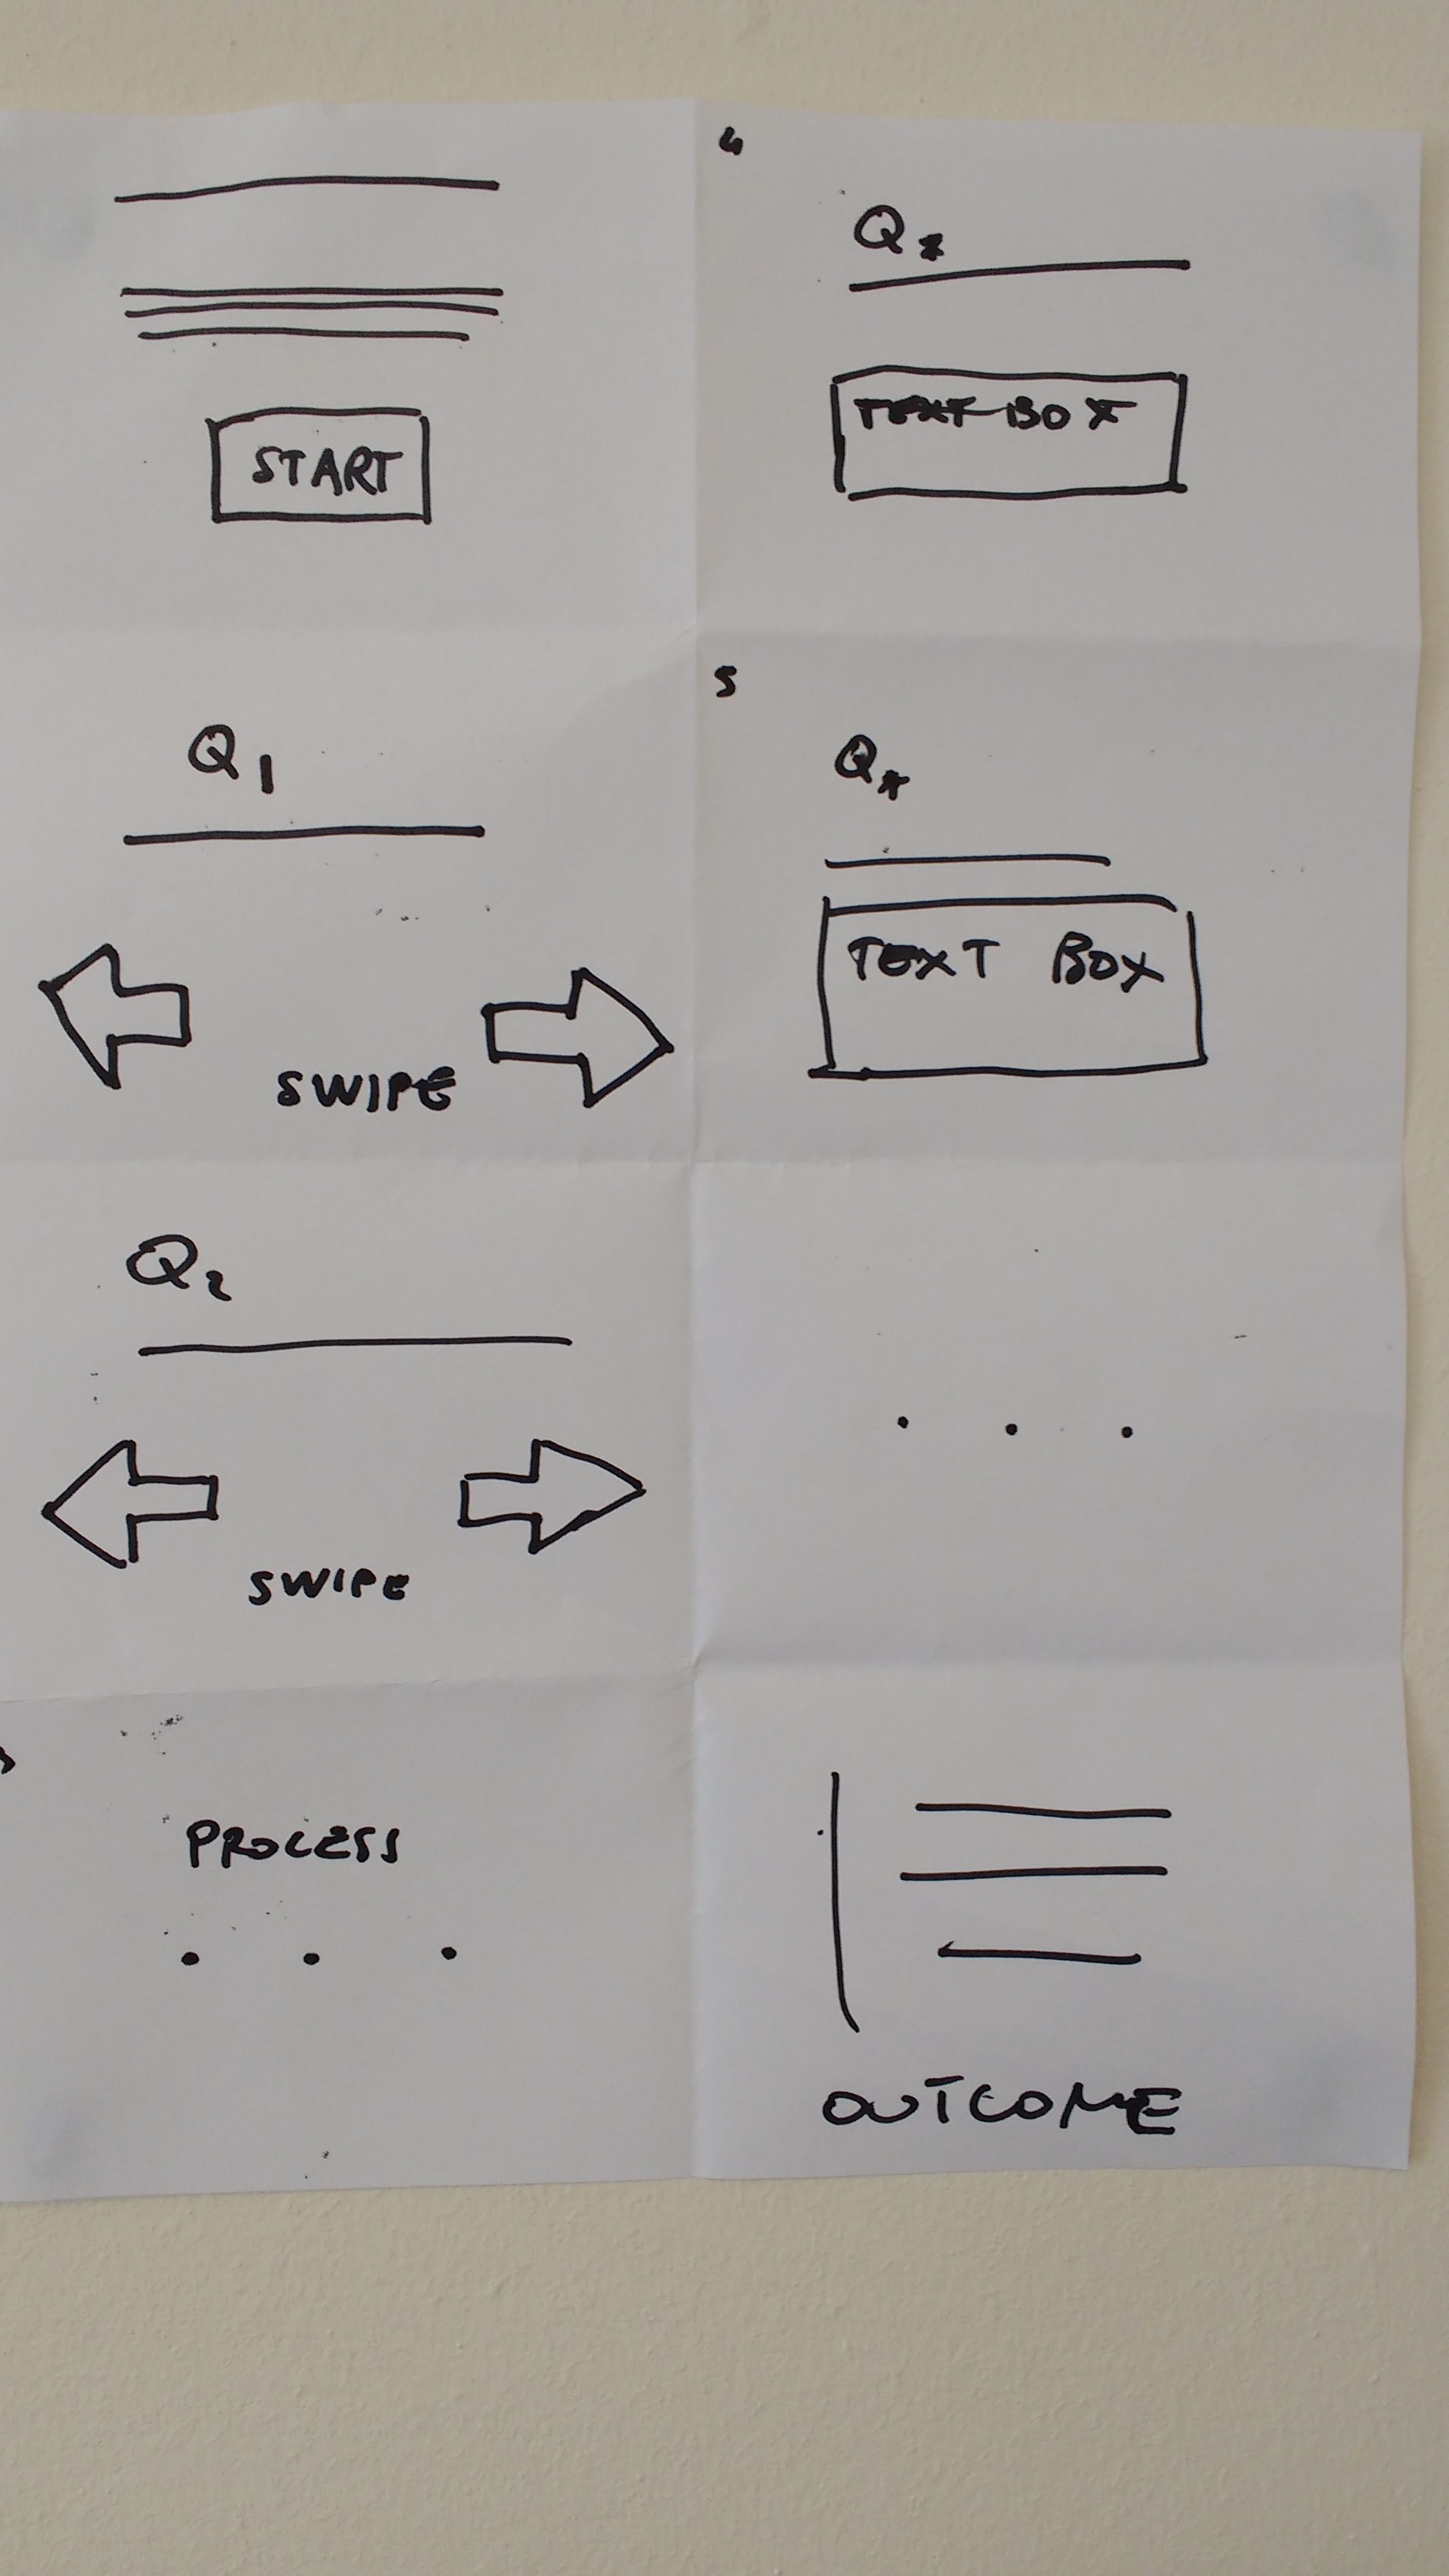 START
Q1
SWIPE
Q2
SWIPE
PROCESS
. . .
4
Q*
TEXT BOX
5
Q*
TEXT BOX
. . .
OUTCOME